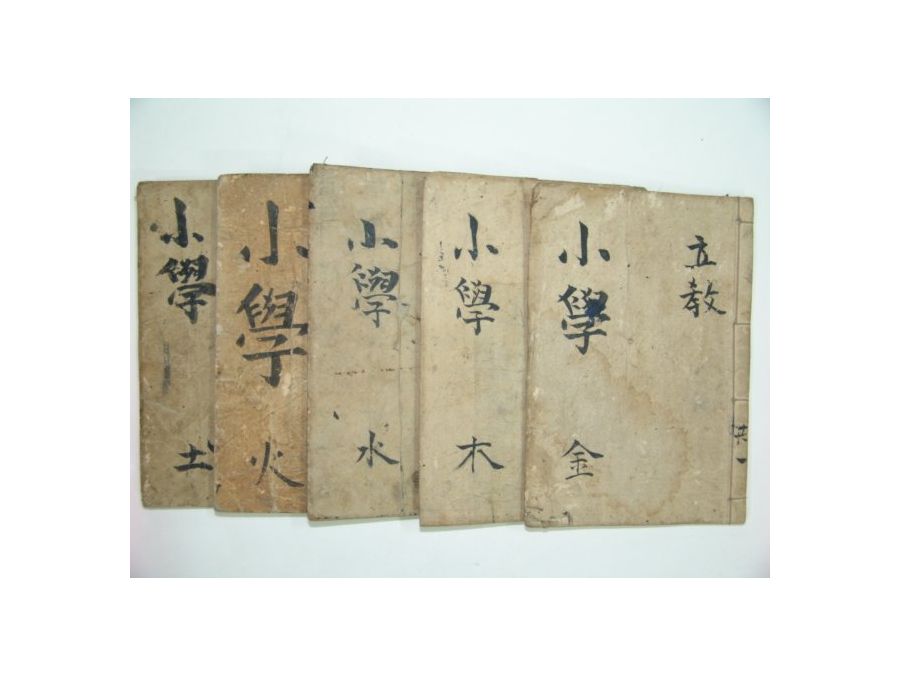 立教
小學 金
小學 木
小學 水
小學 火
小學 土